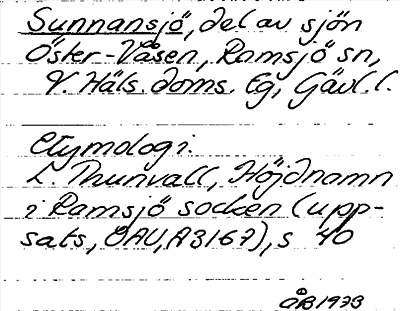 Sunnansjö, del av sjön
Öster-Våsen, Ramsjö sn,
V. Häls. doms. Eg, Gävl. l.
Etymologi.
L. Thunvall, Höjdnamn
i Ramsjö socken (upp-
sats, ÖAU, A3167), s 40
ÅB 1973